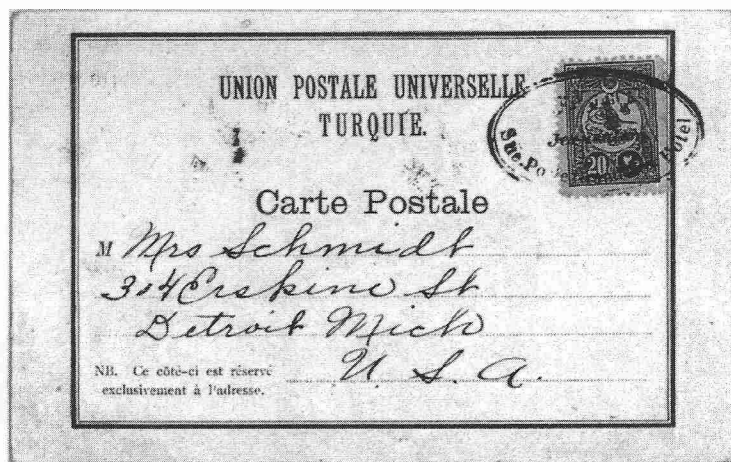 UNION POSTALE UNIVERSELLE
TURQUIE.
Carte Postale
M Mrs Schmidt
314 Erskine St
Detroit Mich
U. S. A.
NB. Ce côté-ci est réservé
exclusivement à l'adresse.
20
Hotel